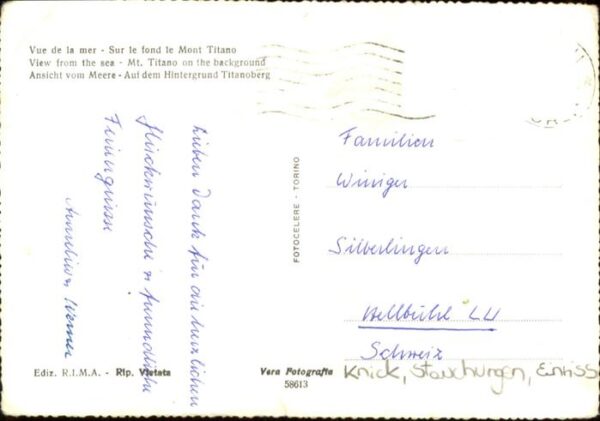 Vue de la mer - Sur le fond le Mont Titano
View from the sea - Mt. Titano on the background
Ansicht vom Meere - Auf dem Hintergrund Titanoberg
Lieben Dank für die herzlichen
Glückwünsche &
Feriengrüsse
FOTOCELERE - TORINO
Familien
Winiger
Silberlingen
Hellbühl LU
Schweiz
Ediz. R.I.M.A. - Rip. Vietata
Vera Fotografia
58613
Knick, Stauchungen, Einriss